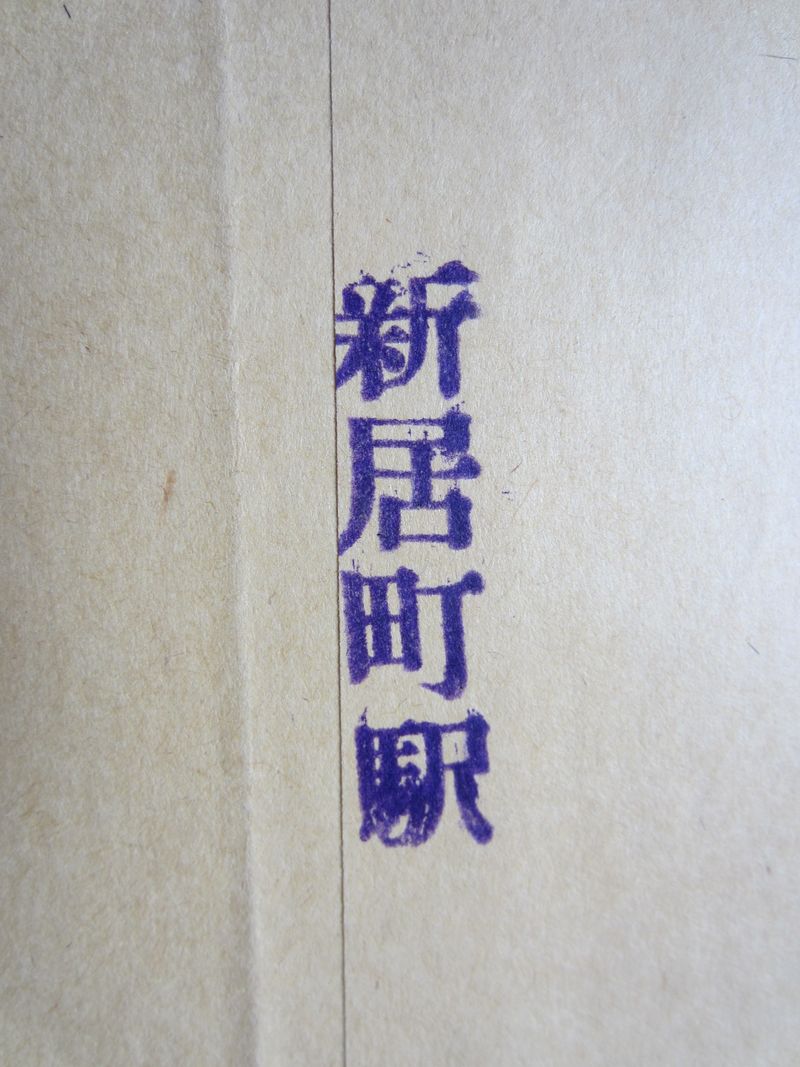 新居町駅